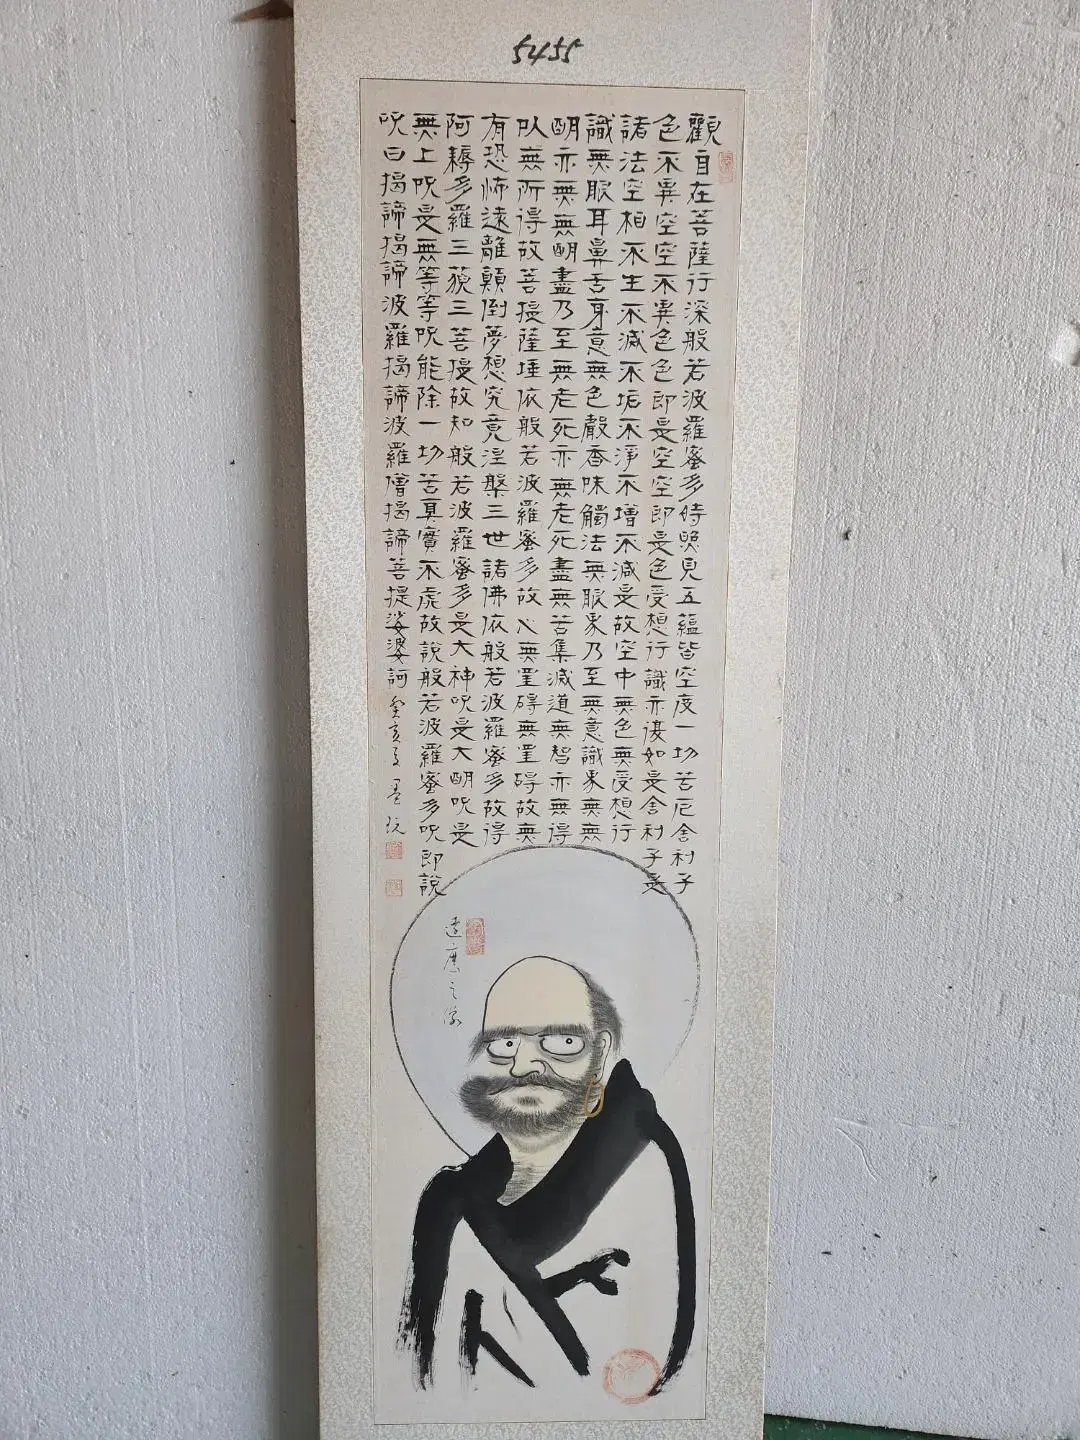 5455
觀自在菩薩行深般若波羅蜜多時照見五蘊皆空度一切苦厄舍利子
色不異空空不異色色即是空空即是色受想行識亦復如是舍利子是
諸法空相不生不滅不垢不淨不增不減是故空中無色無受想行
識無眼耳鼻舌身意無色聲香味觸法無眼界乃至無意識界無無
明亦無無明盡乃至無老死亦無老死盡無苦集滅道無智亦無得
以無所得故菩提薩埵依般若波羅蜜多故心無罣礙無罣礙故無
有恐怖遠離顛倒夢想究竟涅槃三世諸佛依般若波羅蜜多故得
阿耨多羅三藐三菩提故知般若波羅蜜多是大神呪是大明呪是
無上呪是無等等呪能除一切苦真實不虛故說般若波羅蜜多呪即說
呪曰揭諦揭諦波羅揭諦波羅僧揭諦菩提娑婆訶
達磨之像